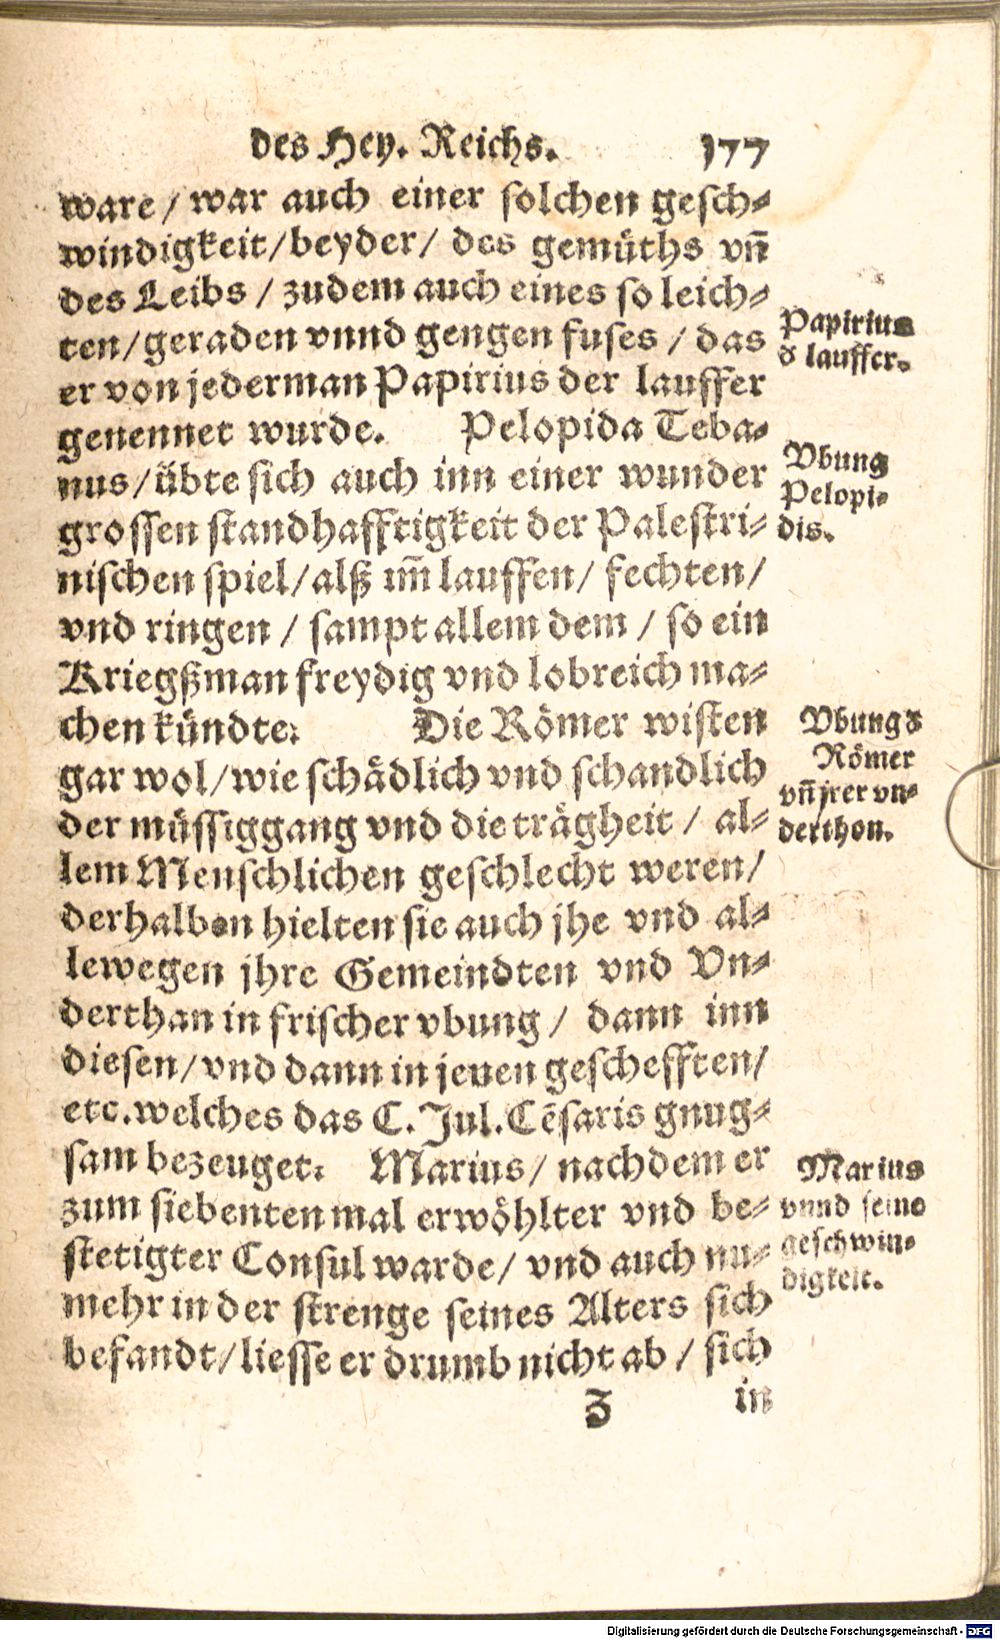 des Hey. Reichs. 177
ware / war auch einer solchen gesch-
windigkeit / beyder / des gemüths vn̄
des Leibs / zudem auch eines so leich-
ten / geraden vnnd gengen fuses / das
er von jederman Papirius der lauffer
genennet wurde. Pelopida Teba-
nus / übte sich auch inn einer wunder
grossen standhafftigkeit der Palestri-
nischen spiel / alß im̄ lauffen / fechten /
vnd ringen / sampt allem dem / so ein
Kriegßman freydig vnd lobreich ma-
chen kündte. Die Römer wisten
gar wol / wie schädlich vnd schandlich
der müssiggang vnd die trägheit / al-
lem Menschlichen geschlecht weren /
derhalben hielten sie auch jhe vnd al-
lewegen jhre Gemeindten vnd Vn-
derthan in frischer vbung / dann inn
diesen / vnd dann in jenen geschefften /
etc. welches das C. Jul. Cēsaris gnug-
sam bezeuget. Marius / nachdem er
zum siebenten mal erwöhlter vnd be-
stetigter Consul warde / vnd auch nu-
mehr in der strenge seines Alters sich
befandt / liesse er drumb nicht ab / sich
Z in
Papirius
d lauffer.
Vbung
Pelopi-
dis.
Vbung d
Römer
vn̄ jrer vn-
derthon.
Marius
vnnd seine
geschwin-
digkeit.
Digitalisierung gefördert durch die Deutsche Forschungsgemeinschaft - DFG